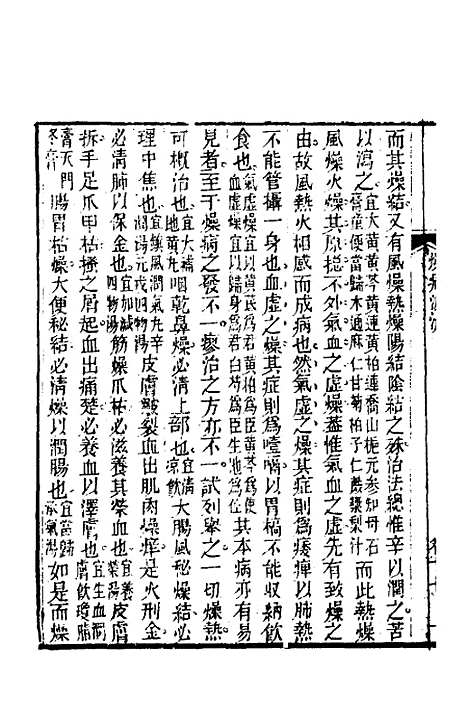 而其燥結又有風燥熱燥陽結陰結之殊治法總惟辛以潤之苦
以瀉之宜大黃黃芩黃連黃柏連喬山梔元參知母石膏童便當歸木通麻仁甘菊柏子仁蘇梨汁而此熱燥
風燥火燥其原穩不外氣血之虛燥蓋惟氣血之虛先有致燥之
由故風熱火相感而成病也然氣虛之燥其症則爲痿痺以肺熱
不能管攝一身也血虛之燥其症則爲噎膈以胃槁不能收納飲
食也氣虛燥宜以黃芪爲君黃柏爲臣黃芩爲使血虛燥宜以歸身爲君白芍爲臣生地爲使其本病亦有易
見者至于燥病之發不一療治之方亦不一試列舉之一切燥熱
可概治也宜大補地黃丸咽乾鼻燥必清上部也宜清涼飲大腸風秘燥結必
理中焦也宜線風潤氣丸辛潤湯元戎四物湯皮膚皴裂血出肌肉燥痒是火刑金
必清肺以保金也宜加減四物湯筋燥爪枯必滋養其榮血也宜滋燥養榮湯皮膚
拆手足爪甲枯搔之屑起血出痛楚必養血以澤膚也宜生血潤膚飲瓊脂
膏天門冬膏腸胃枯燥大便秘結必清燥以潤腸也宜當歸承氣湯如是而燥